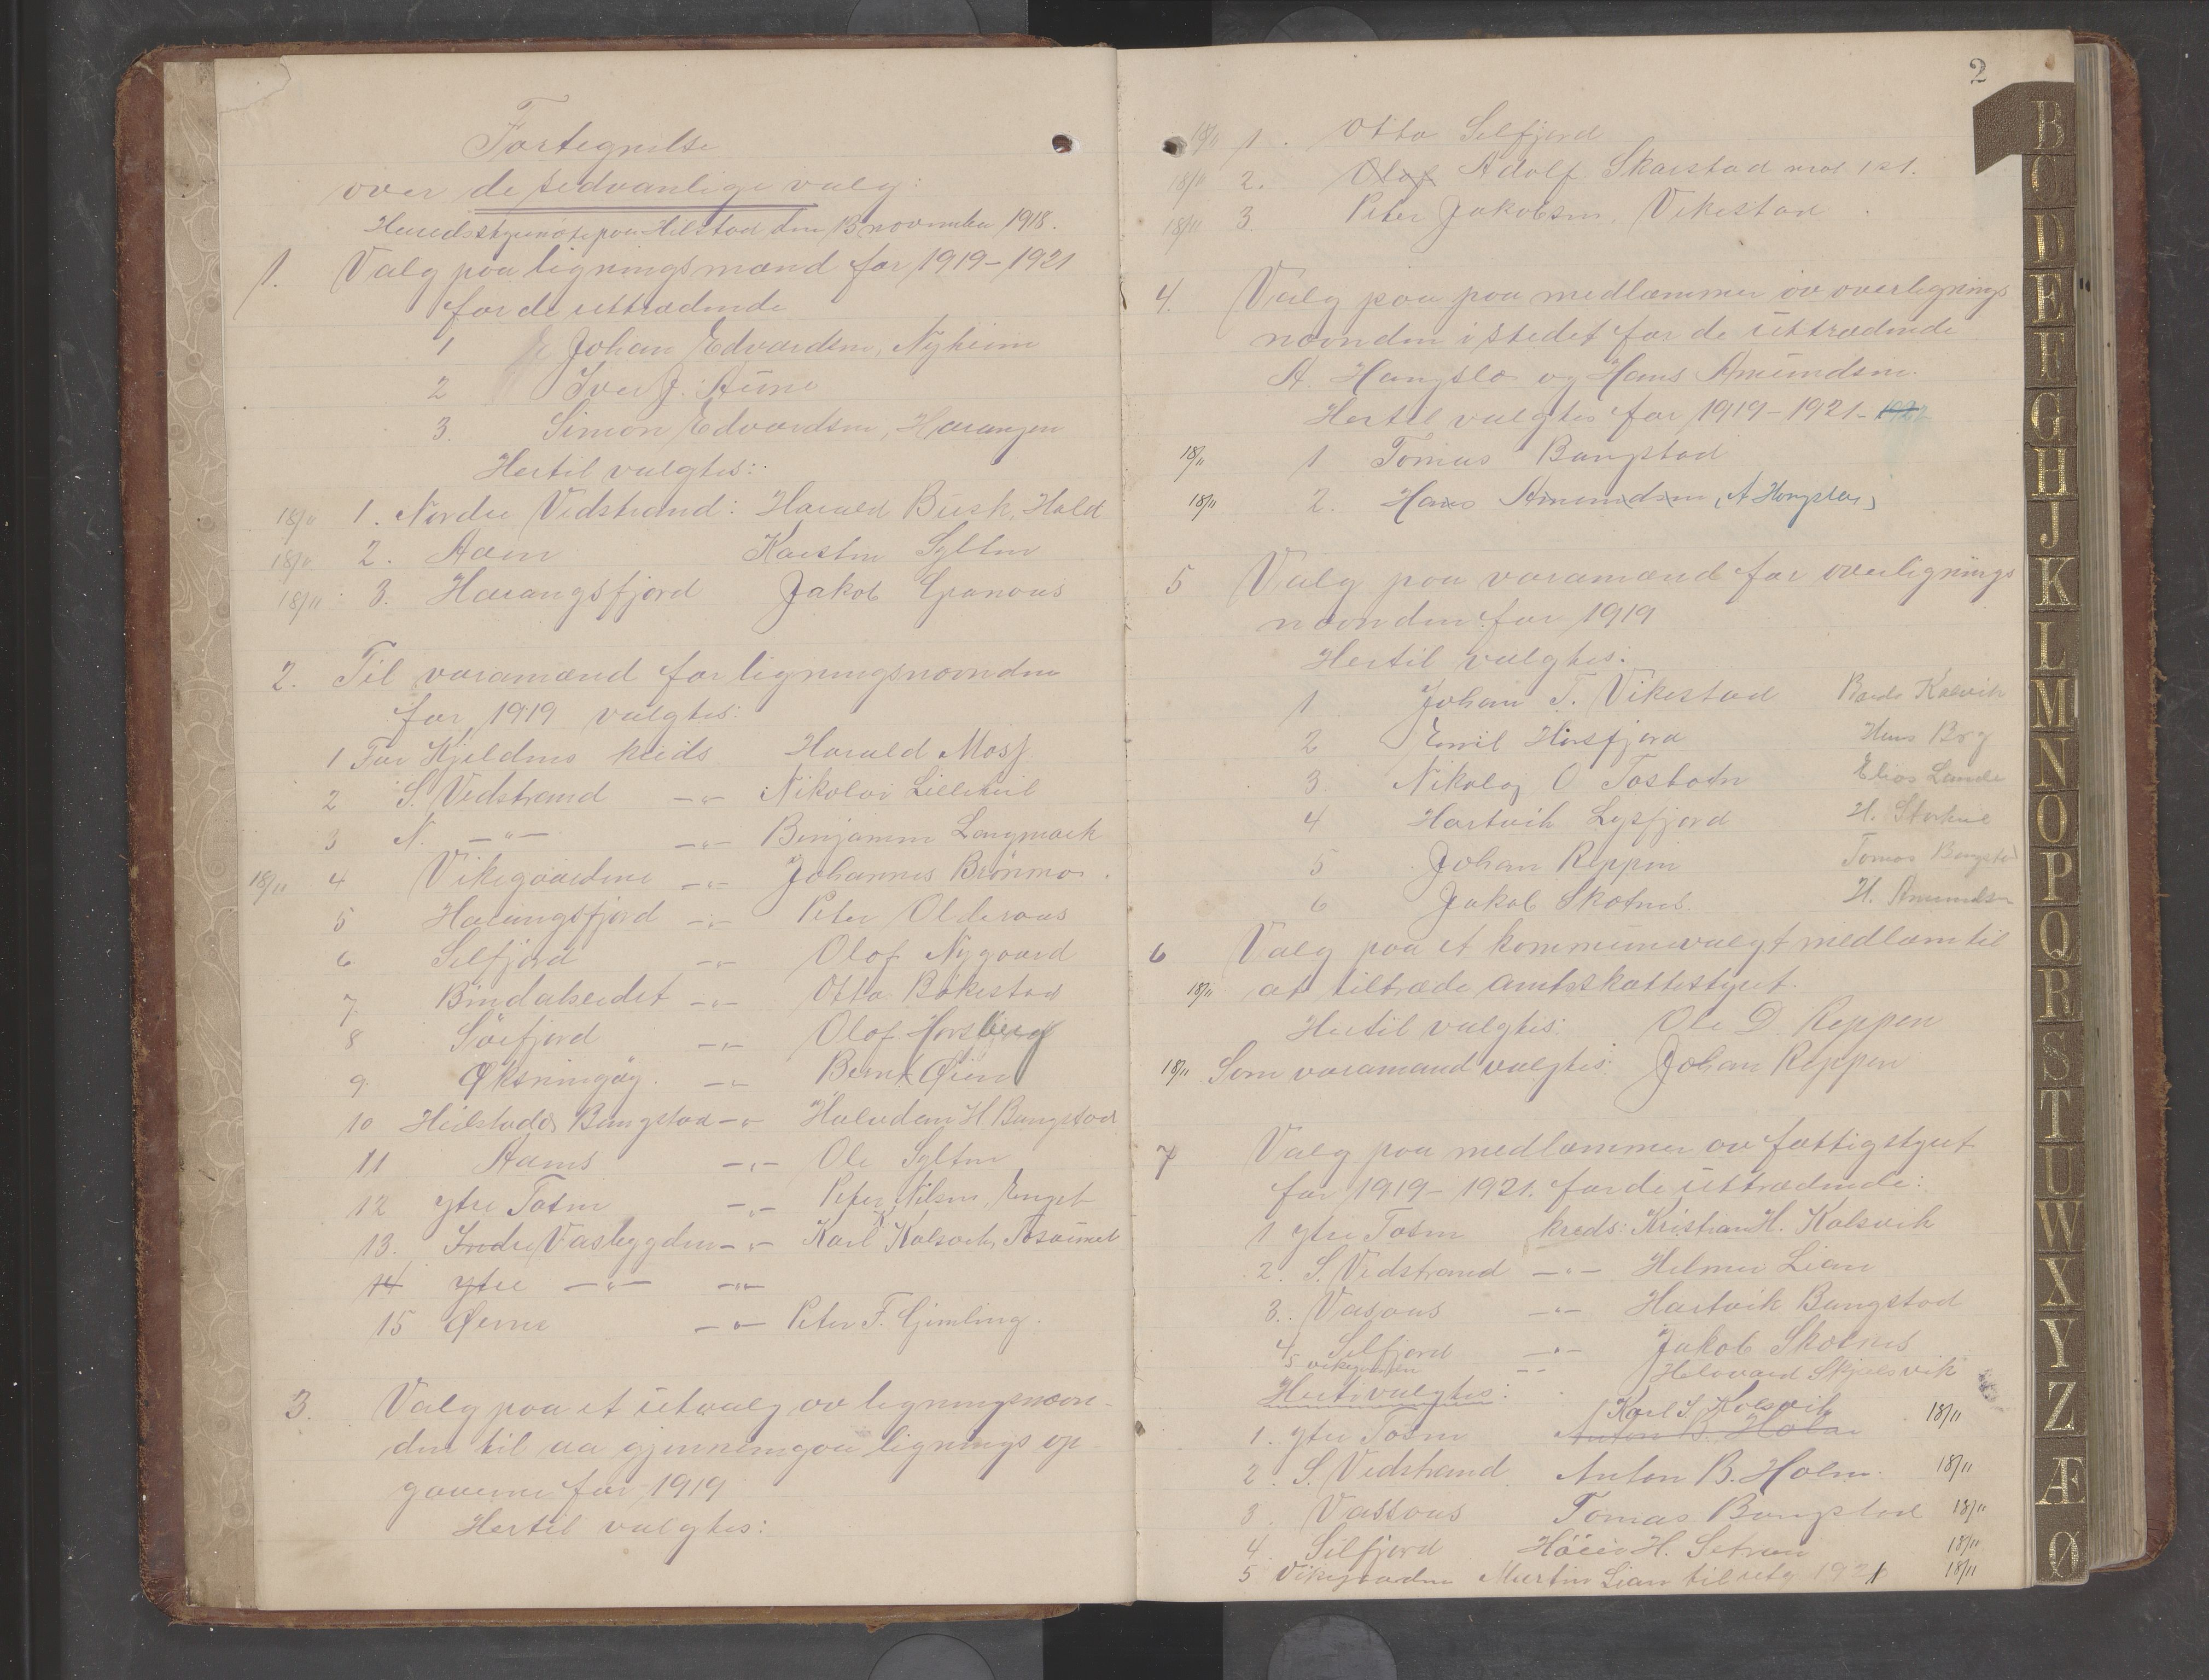 Fortegnelse
over de sedvanlige valg:
Heredsstyremøte paa Heilstad den 13 november 1918.
1. Valg paa ligningsmænd for 1919-1921
for de uttrædende
1 Johan Edvardsen, Nyheim
2 Iver J. Aune
3. Simon Edvardsen, Harangen
Hertil valgtes:
18/11 1. Nordre Vedstrand: Harald Busk, Hald
18/11 2. Aaen Karsten Sylten
18/11 3. Harangsfjord Jakob Granaas
2. Til varamænd for ligningsnævnden
for 1919 valgtes:
1 For Kjeldens kreds Harald Mosj
2 S. Vedstrand -"- Nikolai Lillehil
3 N. -"- -"- Benjamin Langmark
18/11 4 Vikegaardene -"- Johannes Brönmo.
5 Harangsfjord -"- Peter Olderaas
6 Selfjord -"- Olaf Nygaard
7. Bindalseidet -"- Otto Bøkestad
8 Sörfjord -"- Olaf Horsberg
9. Øksningøy. -"- Bernt Øien
10 Heilstads Bangstad -"- Halvdan H. Bangstad
11 Aaens -"- Ole Sylten
12 Ytre Tosen -"- Peter Nilsen, Enget
13. Indre Vasbygden -"- Karl Kolsvik, Tosaunet
14 Ytre -"- -"-
15 Øerne -"- Peter F. Gimling.
3. Valg paa et utvalg av ligningsnævn-
den til aa gjennemgaa lignings op
gaverne for 1919
Hertil valgtes:
2
18/11 1. Otto Selfjord
18/11 2. Olaf Adolf Skarstad mot 1 st.
18/11 3. Peter Jakobsen, Vikestad.
4. Valg paa paa medlæmmer av overlignings
nævnden istedet for de uttrædende
A. Hangslo og Hans Amundsen.
Hertil valgtes for 1919-1921- 1922
18/11 1 Tomas Bangstad
18/11 2. Hans Amundsen (A Hongslo)
5 Valg paa varamænd for overlignings
nævnden for 1919
Hertil valgtes:
1 Johan T. Vikestad Kolsvik
2 Emil Horsfjord Hans Bøg
3 Nikolaj O Tosbotn Elias Lande
4 Hartvik Lysfjord H. Storhil
5 Johan Reppen Tomas Bangstad
6 Jakob Skotnes. H. Amundsen
6 Valg paa et kommunevalgt medlæm til
18/11 at tiltræde amtsskattestyret.
Hertil valgtes: Ole D. Reppen
18/11 Som varamand valgtes: Johan Reppen
7 Valg paa medlæmmer av fattigstyret
for 1919-1921. for de uttrædende:
1 Ytre Tosen kreds: Kristian H. Kolsvik
2. S. Vedstrand -"- Helmer Lian
3. Vasaas -"- Hartvik Bangstad
4. Selfjord -"- Jakob Skotnes
5 Vikegaarden -"- Halvard Skjelsvik
Hertil valgtes:
Karl S. Kolsvik 18/11
1. Ytre Tosen Anton B. Holm
2. S. Vedstrand Anton B. Holm. 18/11
3. Vassaas Tomas Bangstad 18/11
4. Selfjord H. Setran 18/11
5 Vikegaarden Martin Lian til utg 1921 18/11
B
C
D
E
F
G
H
J
K
L
M
N
O
P
Q
R
S
T
U
W
X
Y
Z
Æ
Ø